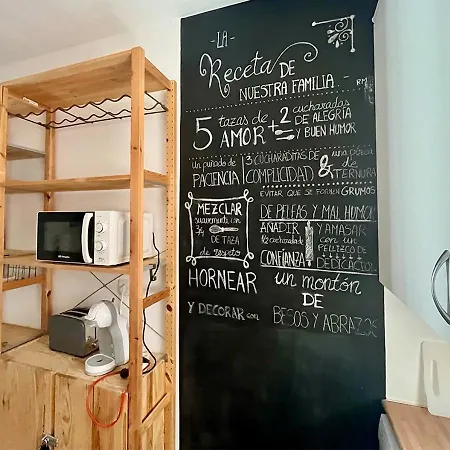 - LA -
Receta DE
NUESTRA FAMILIA -
5 tazas de AMOR + 2 cucharadas DE ALEGRÍA Y BUEN HUMOR
Un puñado de PACIENCIA 3 COCHARADITAS DE COMPLICIDAD & una pizca de TERNURA
EVITAR QUE SE FORMEN GRUMOS
DE PELEAS Y MAL HUMOR
MEZCLAR suavemente con 3/4 TAZA de respeto
AÑADIR 1/2 cucharada de CONFIANZA
Y AMASAR con un PELLIZCO de DEDICACIÓN
HORNEAR un montón
DE
Y DECORAR con BESOS Y ABRAZOS